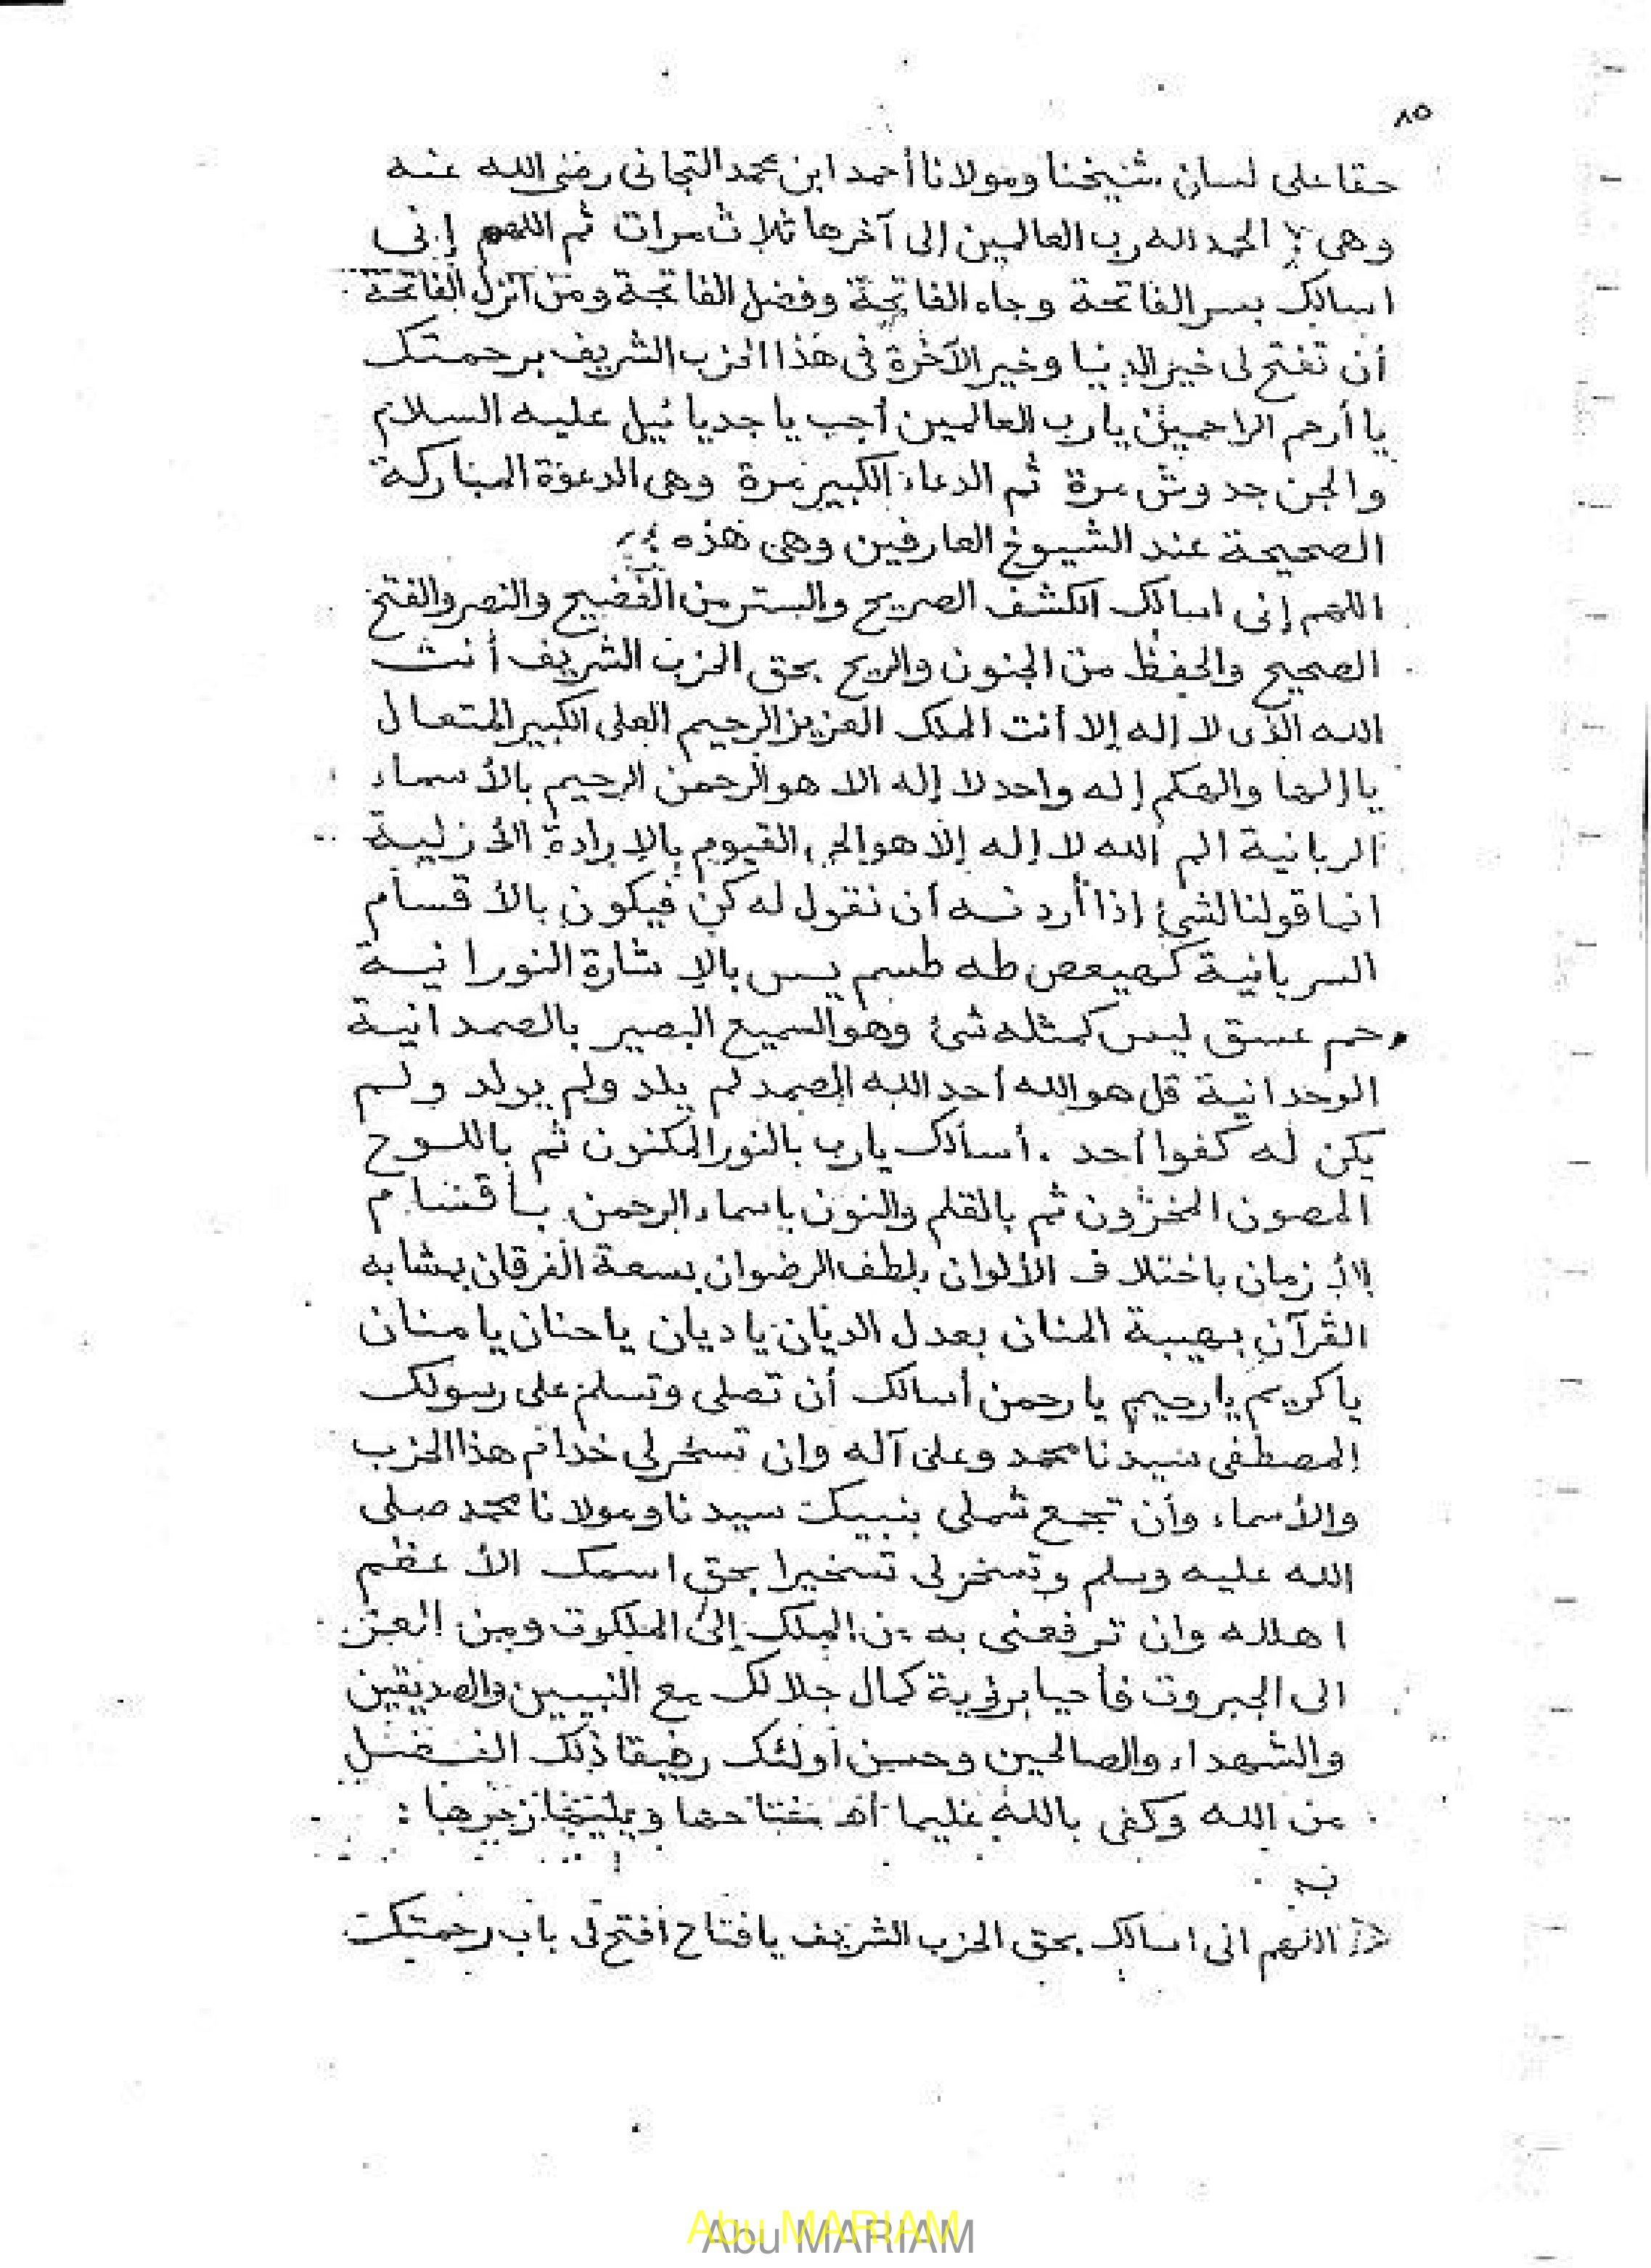 ٨٥
حقا على لسان شيخنا ومولانا أحمد ابن محمد التجانى رضى الله عنه
وهى : الحمد لله رب العالمين إلى آخرها ثلاث مرات ثم اللهم إنى
اسالك بسر الفاتحة وجاه الفاتحة وفضل الفاتحة ومن انزل الفاتحة
أن تفتح لى خير الدنيا وخير الآخرة فى هذا الحزب الشريف برحمتك
يا أرحم الراحمين يا رب العالمين أجب يا جديائيل عليه السلام
والجن جدوش مرة ثم الدعاء الكبير مرة وهى الدعوة المباركة
الصحيحة عند الشيوخ العارفين وهى هذه :
اللهم إنى اسالك الكشف الصريح والستر من الفضيح والنصر والفتح
الصحيح والحفظ من الجنون والريح بحق الحزب الشريف أنت
الله الذى لا إله إلا أنت الملك العزيز الرحيم العلى الكبير المتعال
يا إلهنا والهكم إله واحد لا إله الا هو الرحمن الرحيم بالأسماء
الربانية الم الله لا إله إلا هو الحى القيوم بالإرادة الأزلية
انما قولنا لشئ إذا أردنه أن نقول له كن فيكون بالأقسام
السريانية كهيعص طه طسم يس بالإشارة النورانية
حم عسق ليس كمثله شئ وهو السميع البصير بالصمدانية
الوحدانية قل هو الله أحد الله الصمد لم يلد ولم يولد ولم
يكن له كفوا احد . أسألك يا رب بالنور المكنون ثم باللوح
المصون المخزون ثم بالقلم والنون باسماء الرحمن باقسام
الأزمان باختلاف الألوان بلطف الرضوان بسعة الفرقان بمشابه
القرآن بهيبة المنان بعدل الديان يا ديان يا حنان يا منان
يا كريم يا رحيم يا رحمن أسالك أن تصلى وتسلم على رسولك
المصطفى سيدنا محمد وعلى آله وان تسخر لى خدام هذا الحزب
والأسماء وأن تجمع شملى بنبيك سيدنا ومولانا محمد صلى
الله عليه وسلم وتسخر لى تسخيرا بحق اسمك الأعظم
اهلله وان ترفعنى به من الملك إلى الملكوت ومن العز
الى الجبروت فأحيا برؤية كمال جلالك مع النبيين والصديقين
والشهداء والصالحين وحسن أولئك رفيقا ذلك الفضل
من الله وكفى بالله عليما اه ويليها زجرها :
اللهم انى اسالك بحق الحزب الشريف يا فتاح افتح لى باب رحمتك
Abu MARIAM